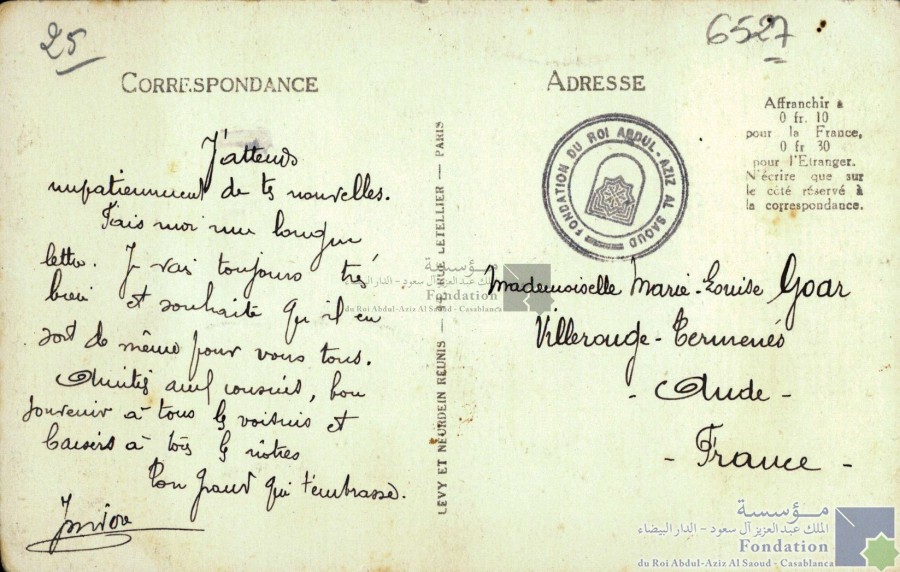 25
6527
CORRESPONDANCE
ADRESSE
Affranchir à
0 fr. 10
pour la France,
0 fr 30
pour l'Etranger.
N'écrire que sur
le côté réservé à
la correspondance.
FONDATION DU ROI ABDUL-AZIZ AL SAOUD
J'attends
impatiemment de ts nouvelles.
Fais moi une longue
lettre. Je vais toujours très
bien et souhaite qu'il en
soit de même pour vous tous.
Amitiés aux cousins, bon
souvenir à tous ls voisins et
baisers à tous ls nôtres
Ton grand qui t'embrasse.
LEVY ET NEURDEIN REUNIS — RUE LETELLIER — PARIS
Mademoiselle Marie-Louise Goar
Villerouge-Termenès
- Aude -
- France -
مؤسسة
الملك عبدالعزيز آل سعود - الدار البيضاء
Fondation
du Roi Abdul-Aziz Al Saoud - Casablanca
مؤسسة
الملك عبدالعزيز آل سعود - الدار البيضاء
Fondation
du Roi Abdul-Aziz Al Saoud - Casablanca